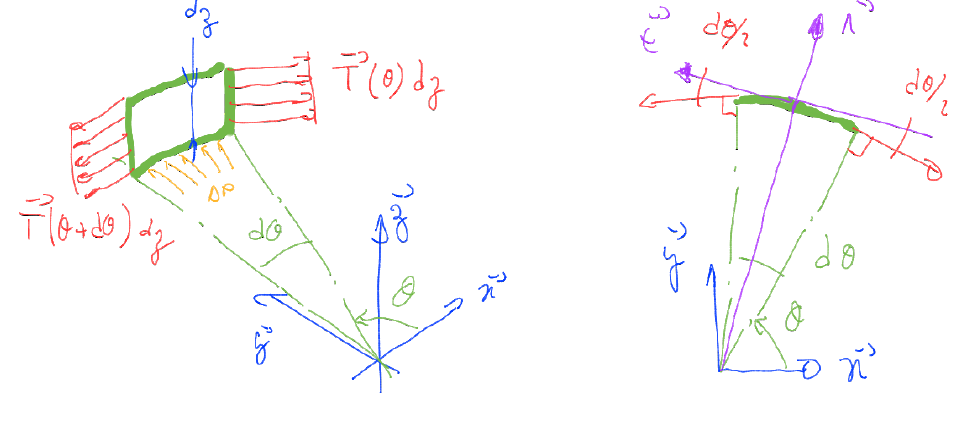 dz
T⃗(θ) dz
T⃗(θ+dθ) dz
ΔP
dθ
z⃗
θ
x⃗
y⃗
t⃗
dθ/2
r⃗
dθ/2
y⃗
dθ
θ
x⃗